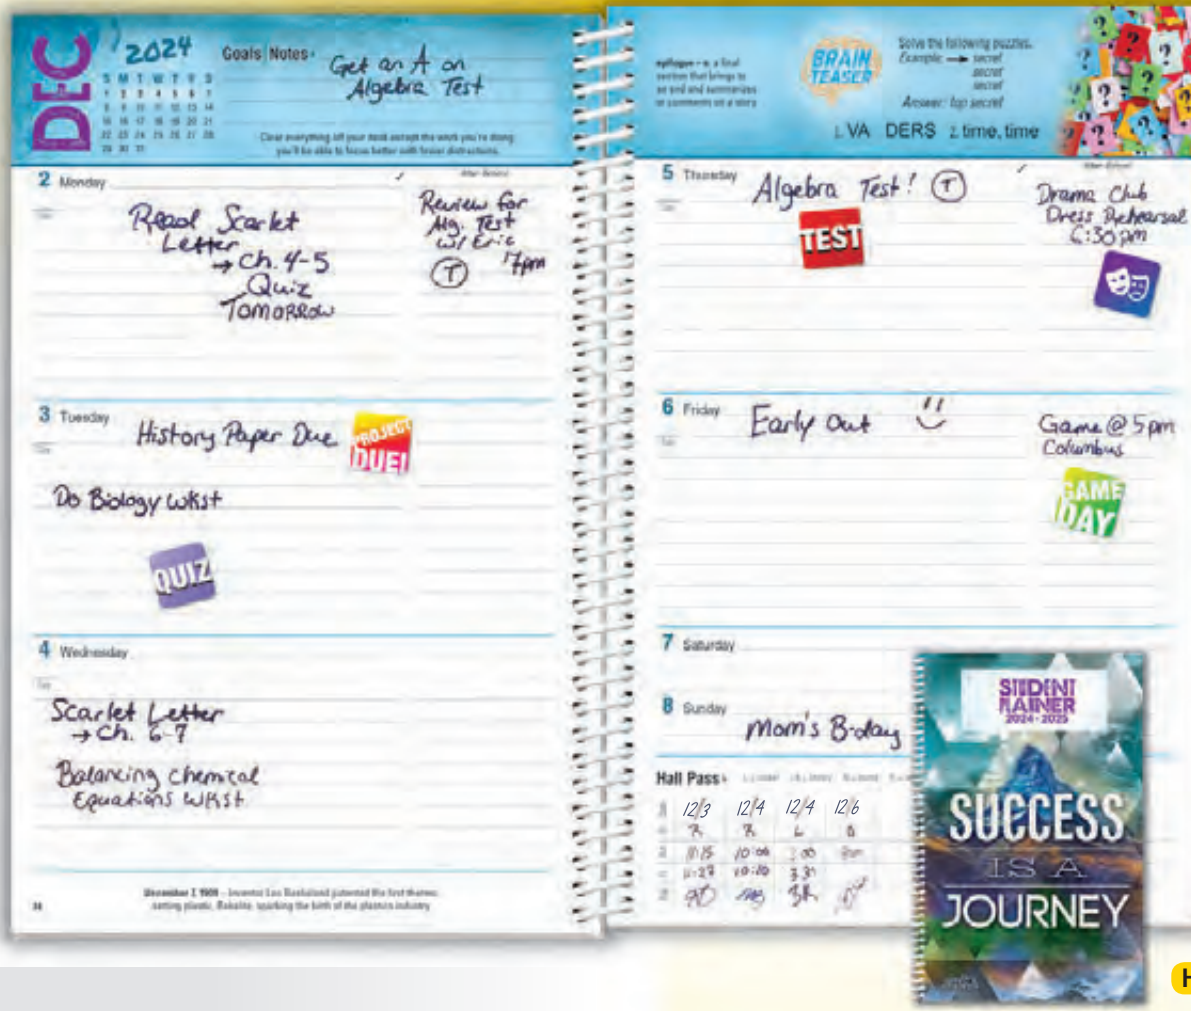 DEC
2024
Goals|Notes
Get an A on
Algebra Test
S M T W T F S
1 2 3 4 5 6 7
8 9 10 11 12 13 14
15 16 17 18 19 20 21
22 23 24 25 26 27 28
29 30 31
Clear everything off your desk except the work you're doing;
you'll be able to focus better with fewer distractions.
2 Monday
After School
Read Scarlet
Letter
→ Ch. 4-5
Quiz
TOMORROW
Review for
Alg. Test
w/ Eric
T 7pm
3 Tuesday
History Paper Due
PROJECT
DUE!
Do Biology wkst
QUIZ
4 Wednesday
Scarlet Letter
→ Ch. 6-7
Balancing chemical
Equations WKst
December 7, 1909 – Inventor Leo Baekeland patented the first thermo-
setting plastic, Bakelite, sparking the birth of the plastics industry
epilogue – n. a final
section that brings to
an end and summarizes
or comments on a story
BRAIN
TEASER
Solve the following puzzles.
Example: → secret
secret
secret
Answer: top secret
1. VA DERS 2. time, time
5 Thursday
After School
Algebra Test! T
TEST
Drama Club
Dress Rehearsal
6:30 pm
6 Friday
Early Out
Game @ 5 pm
Columbus
GAME
DAY
7 Saturday
8 Sunday
Mom's B-day
Hall Pass
12/3 12/4 12/4 12/6
R R L
10:00
10:10
STUDENT
PLANNER
2024-2025
SUCCESS
IS A
JOURNEY
H